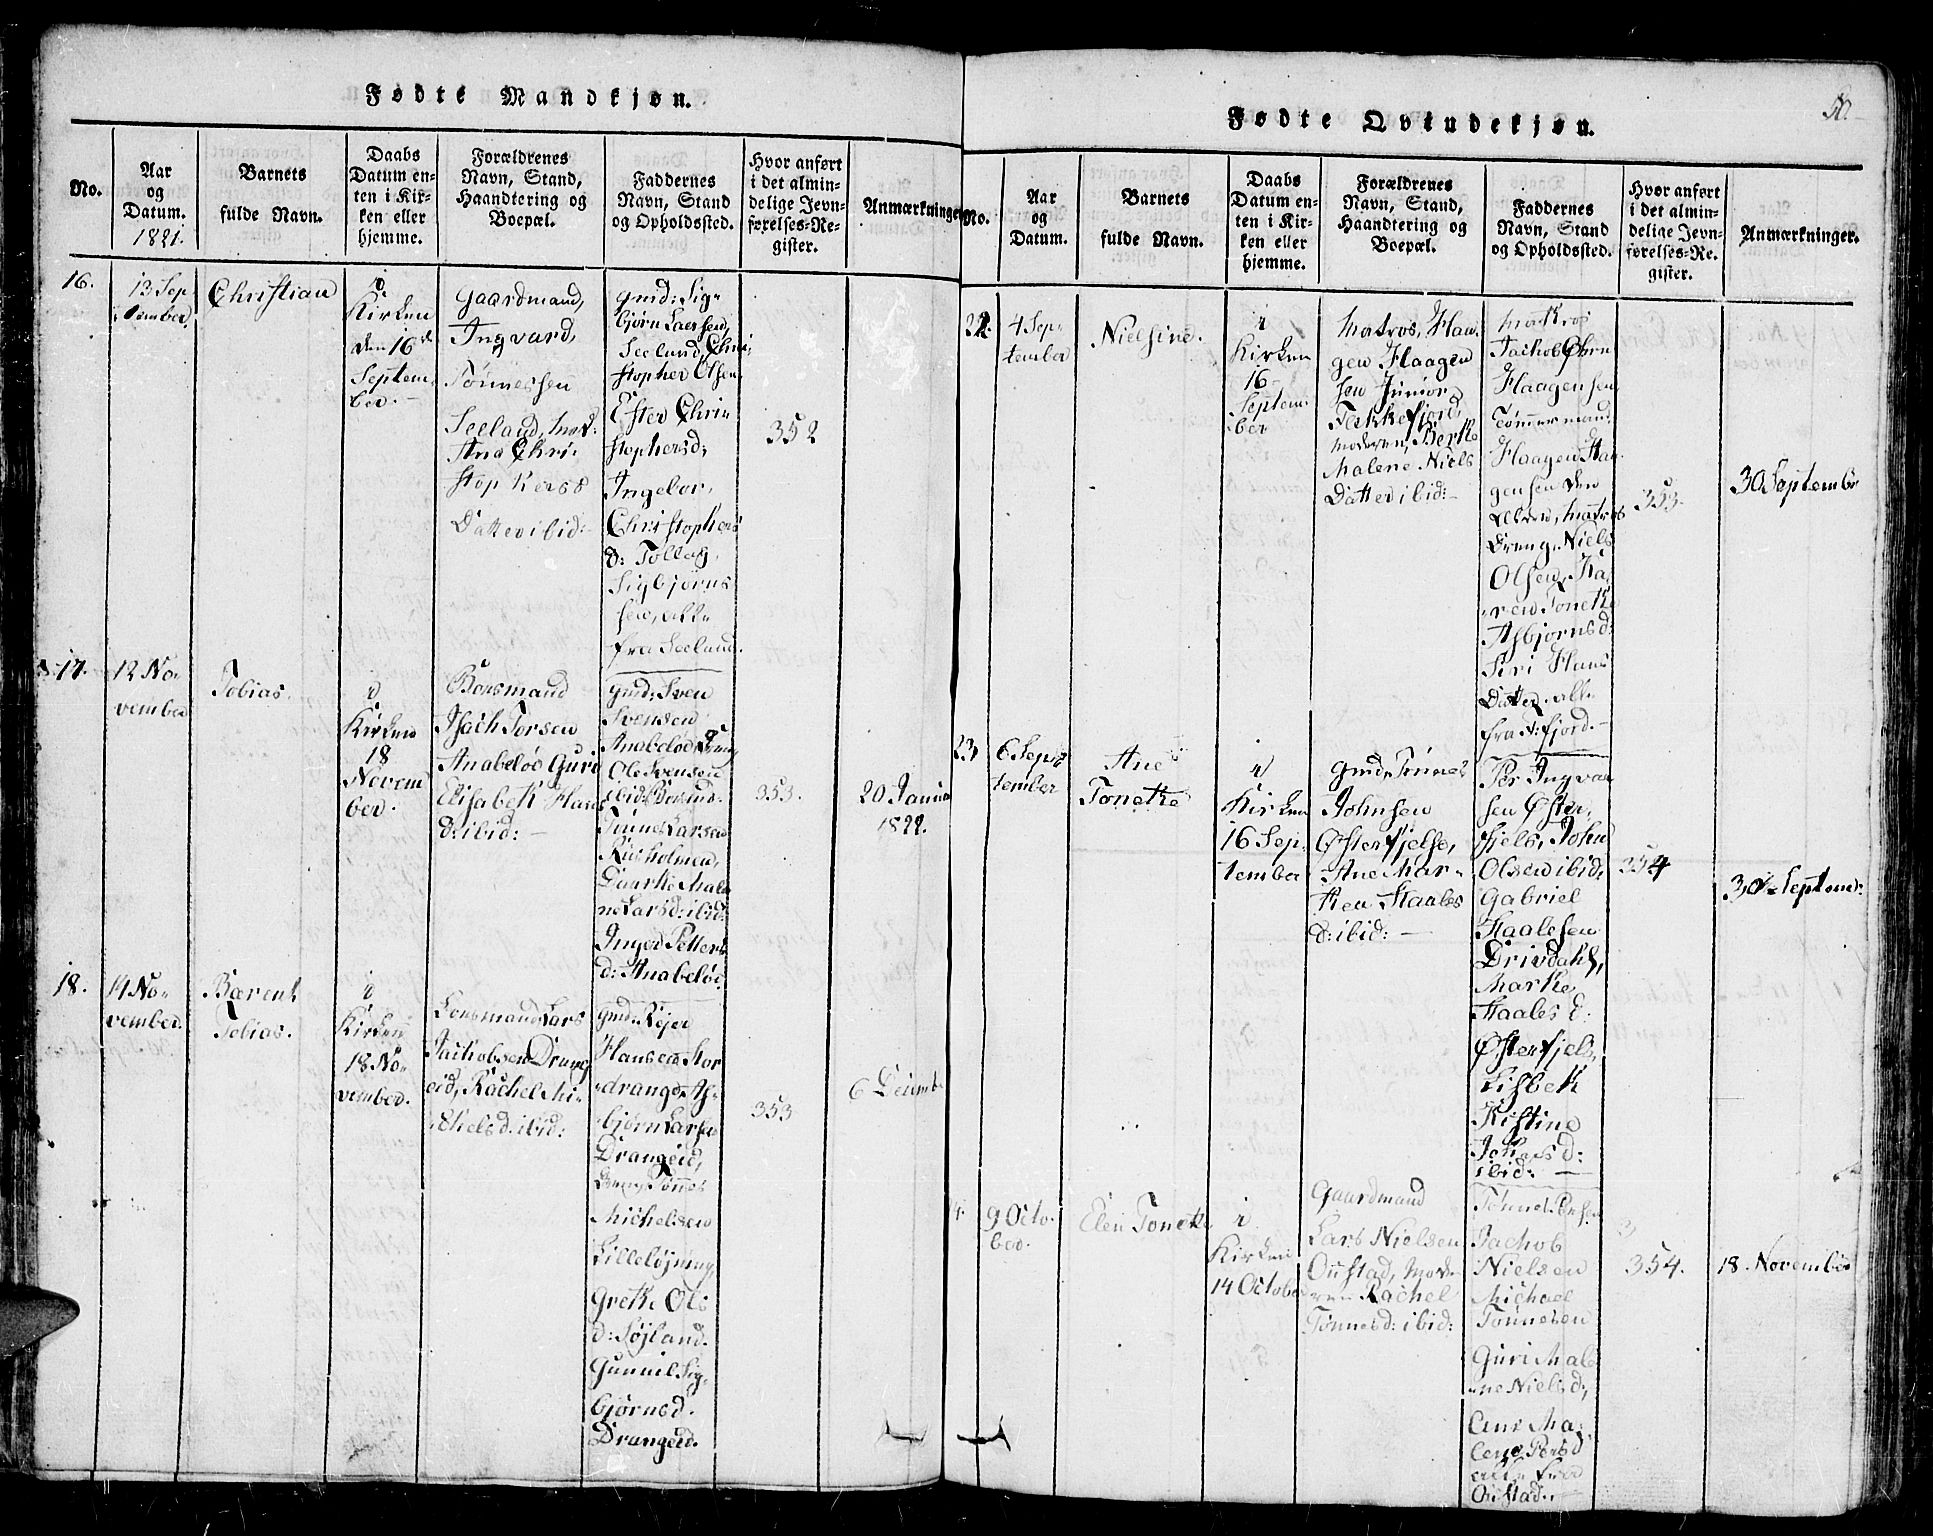 Fødte Mandkjøn.
No.
Aar
og
Datum.
1821.
Barnets
fulde Navn.
Daabs
Datum en-
ten i Kir-
ken eller
hjemme.
Forældrenes
Navn, Stand,
Haandtering og
Boepæl.
Faddernes
Navn, Stand
og Opholdssted.
Hvor anført
i det almin-
delige Jevn-
førelses-Re-
gister.
Anmærkninger.
16.
13 Sep-
tember
Christian
i
Kirken
den 16de
Septem-
ber.
Gaardmand
Ingvard
Tønnessen
Seeland, mod:
Ane Chri-
stophers
Datter ibid:
gmd: Sig-
bjørn Laersen,
Seeland, Chri-
stopher Olsen
Ester Chri-
stophersd:
Ingebor,
Christophers
d: Tollag
Sigbjørns
sen, alle
fra Seeland.
352
17.
12 No-
vember
Tobias.
i
Kirken
18
Novem
ber.
Bonsmand
Isach Torsen
Anabeløe Guri
Elisabeth Hans
d: ibid:
gmd: Sven
Svensen
Anabeløe, Dreng
Ole Svensen
ibid,
Tønnes Larsen
Risholmen,
Daarthe Male
ne Larsd: ibid:
Inger Petters
d: Anabeløe.
353.
20 Januar
1822.
18.
14 No-
vember.
Bærent
Tobias.
i
Kirken
18 No-
vember.
Lensmand Lars
Jachobsen Drang
eid, Rachel Mi-
chelsd: ibid:
gmd: Rejer
Hansen Stor
drange, As-
bjørn Larsen
Drangeid,
Dreng Tønnes
Michelsen
Lilleløjning,
Grethe Ols
d: Søjland.
Gunnil Sig-
bjørnsd.
Drangeid.
353
6 Decembr
50.
Fødte Qvindekjøn.
No.
Aar
og
Datum.
Barnets
fulde Navn.
Daabs
Datum en-
ten i Kir-
ken eller
hjemme.
Forældrenes
Navn, Stand,
Haandtering og
Boepæl.
Faddernes
Navn, Stand
og Opholdssted.
Hvor anført
i det almin-
delige Jevn-
førelses-Re-
gister.
Anmærkninger.
22.
4 Sep-
tember
Nielsine.
i
Kirken
16
Septem
ber
Matros, Haa-
gen Haagen
sen Junior
Fekkefjord,
moderen, Berthe
Malene Niels
Datter ibid:
Matros
Jachob Chrn
Haagensen
Tømmermand
Haagen Haa
gensen den
ældre, Matros
Dreng Niels
Olsen, Ka-
ren Tonethe
Asbjørnsd:
Siri Hans
Datter alle
fra F:fjord.
353.
30 Septembr
23,
6 Sept
tember
Ane
Tonethe
i
Kirken
16 Sep-
tember
gmd: Tønnes
Johnsen
Østerfjelse,
Ane Mar-
then Staales
d: ibid:
Per Ingvar
sen Øster
fjels, John
Olsen ibid,
Gabriel
Staalesen
Drivdahl,
Marthe
Staales d:
Østerfjels,
Lisbeth
Kistine
Johns d:
ibid:
354
30 Septembr.
4.
9 Octo-
ber.
Elen Tonethe
i
Kirken
14 October
Gaardmand
Lars Nielsen
Oustad, Mode
ren Rachel
Tønnesd: ibid:
Tønnes Persen
Jachob
Nielsen
Michael
Tønnesen
Guri Male
ne Nielsd,
Ane Ma-
lene Persd
alle fraa
Oustad.
354.
18. November